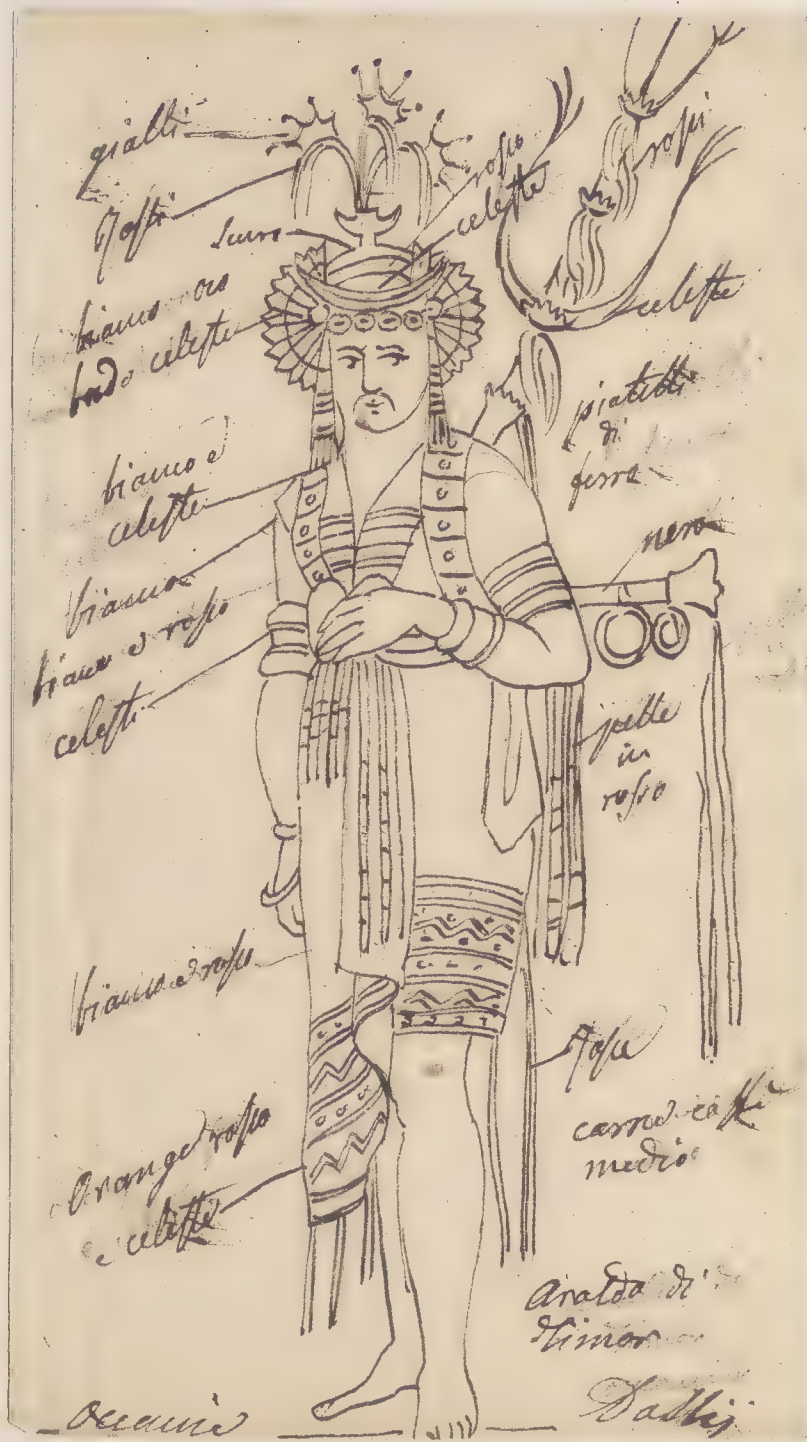 gialli
rossi
rosso
celeste
rossi
scuro
bianco oro
bordo celeste
celeste
piatelli
di
ferro
bianco e
celeste
nero
bianco
bianco e rosso
celesti
pelle
in
rosso
bianco e rosso
rosse
carne caffè
medio
Orange rosso
e celeste
Araldo di
Timor
Oceanie